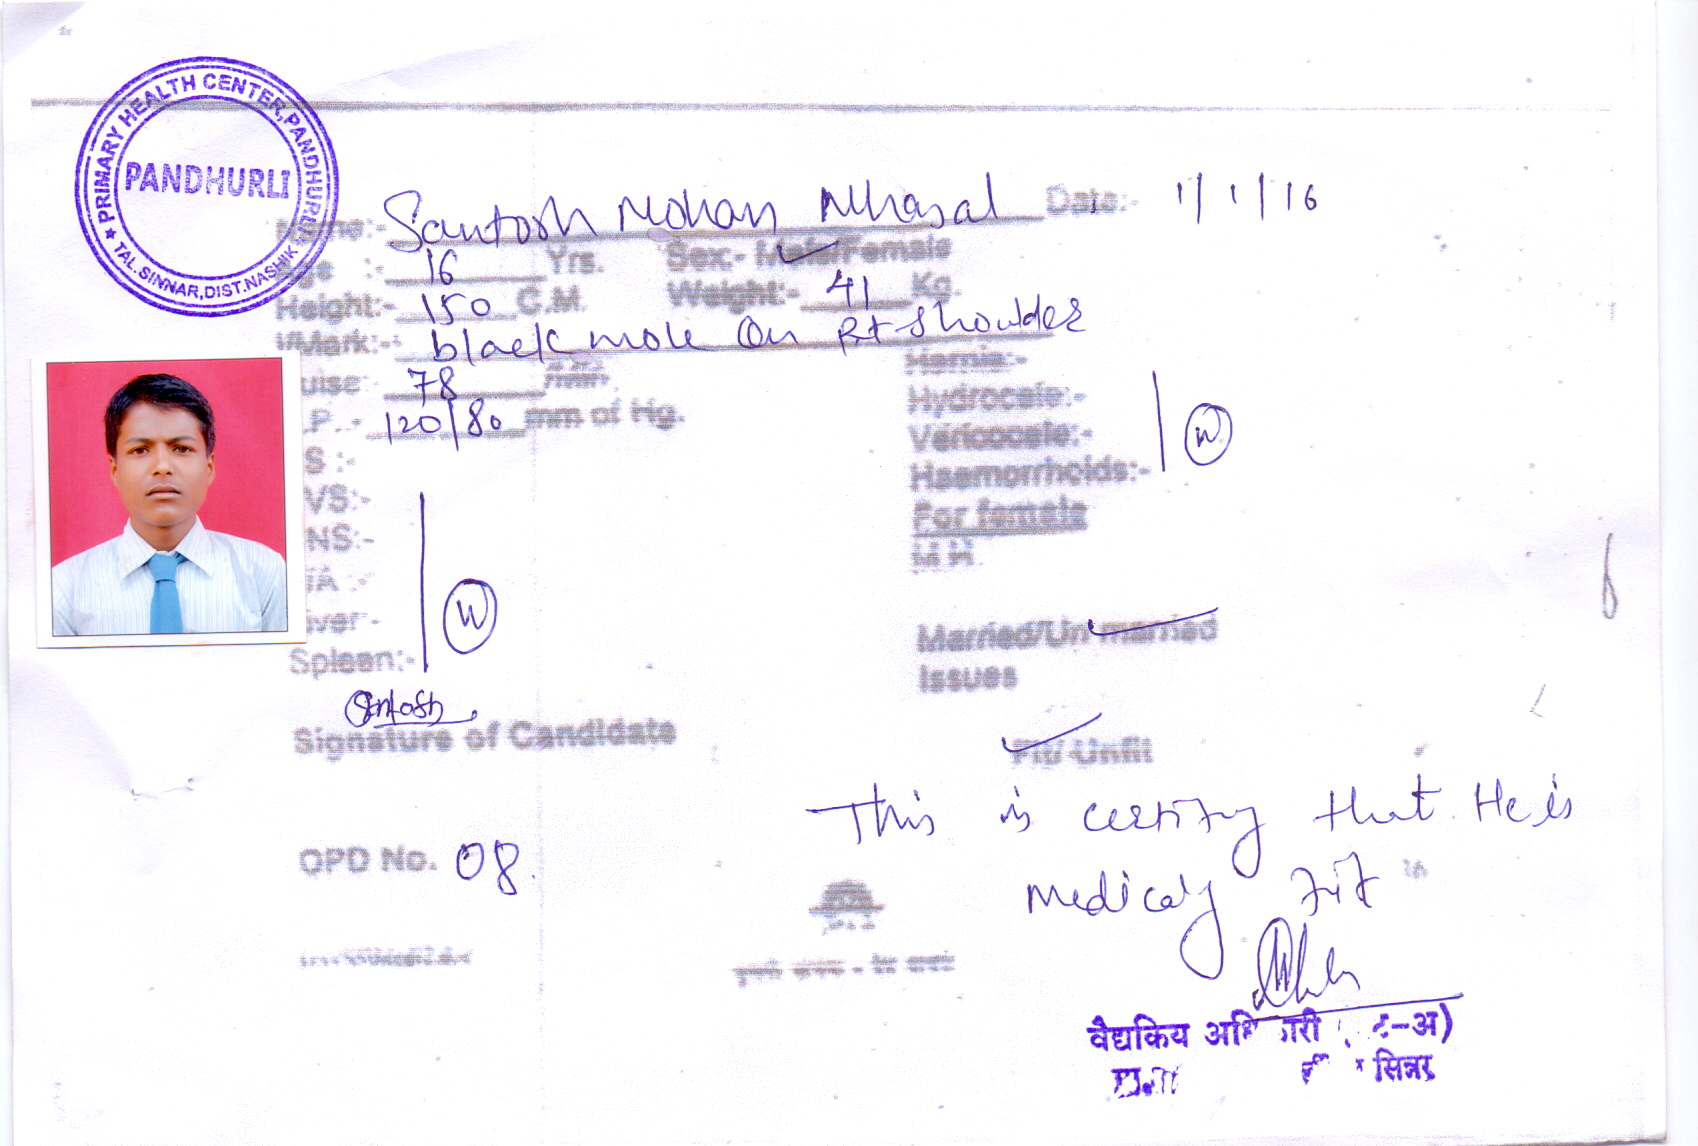 PRIMARY HEALTH CENTER, PANDHURLI
PANDHURLI
★ TAL. SINNAR, DIST. NASHIK ★
Name:- Santosh Mohan Mhasal Date:- 1/1/16
Age :- 16 Yrs. Sex:- Male/Female
Height:- 150 C.M. Weight:- 41 Kg.
I/Mark:- black mole on Rt shoulder
78 Hernia:-
.P. - 120/80 mm of Hg. Hydrocele:-
S :- Vericocele:- N
VS:- Haemorrhoids:-
NS:- For female
/A :- M.H.
iver - N Married/Un-married
Spleen:- Issues
Santosh
Signature of Candidate Fit/Unfit
This is certify that He is
OPD No. 08. medicaly fit
वैद्यकिय अधि ारी ट-अ)
सिन्नर